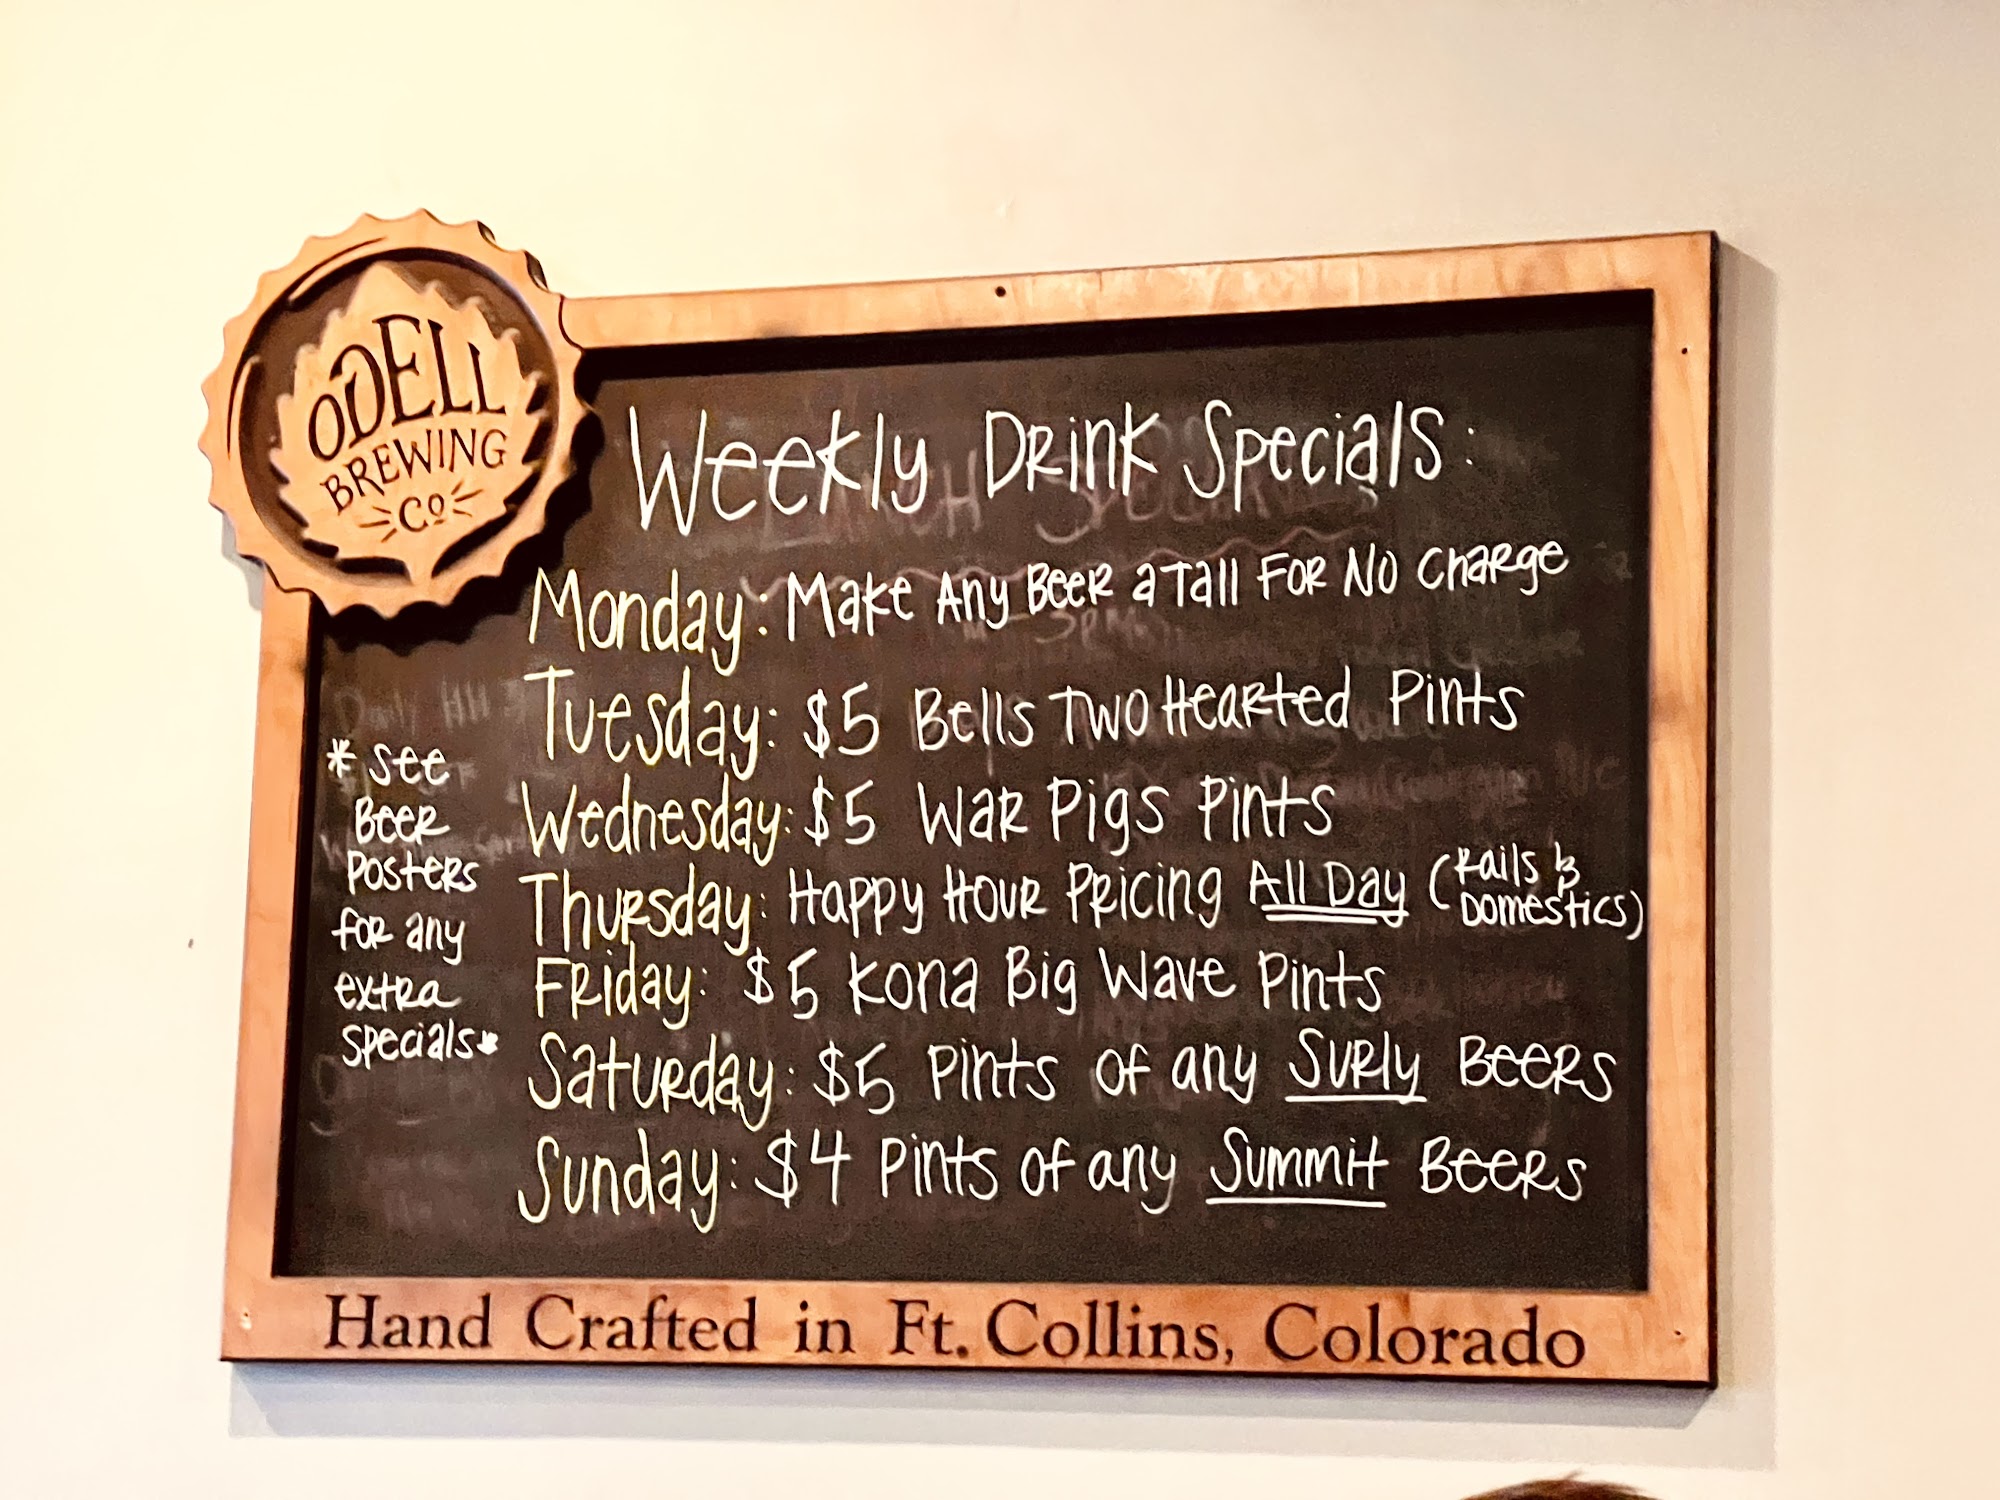 ODELL
BREWING
Co
Weekly Drink Specials:
Monday: Make Any Beer a Tall For No Charge
Tuesday: $5 Bells Two Hearted Pints
Wednesday: $5 War Pigs Pints
Thursday: Happy Hour Pricing All Day (Rails & Domestics)
Friday: $5 Kona Big Wave Pints
Saturday: $5 Pints of any Surly Beers
Sunday: $4 Pints of any Summit Beers
* See
Beer
Posters
for any
extra
specials*
Hand Crafted in Ft. Collins, Colorado